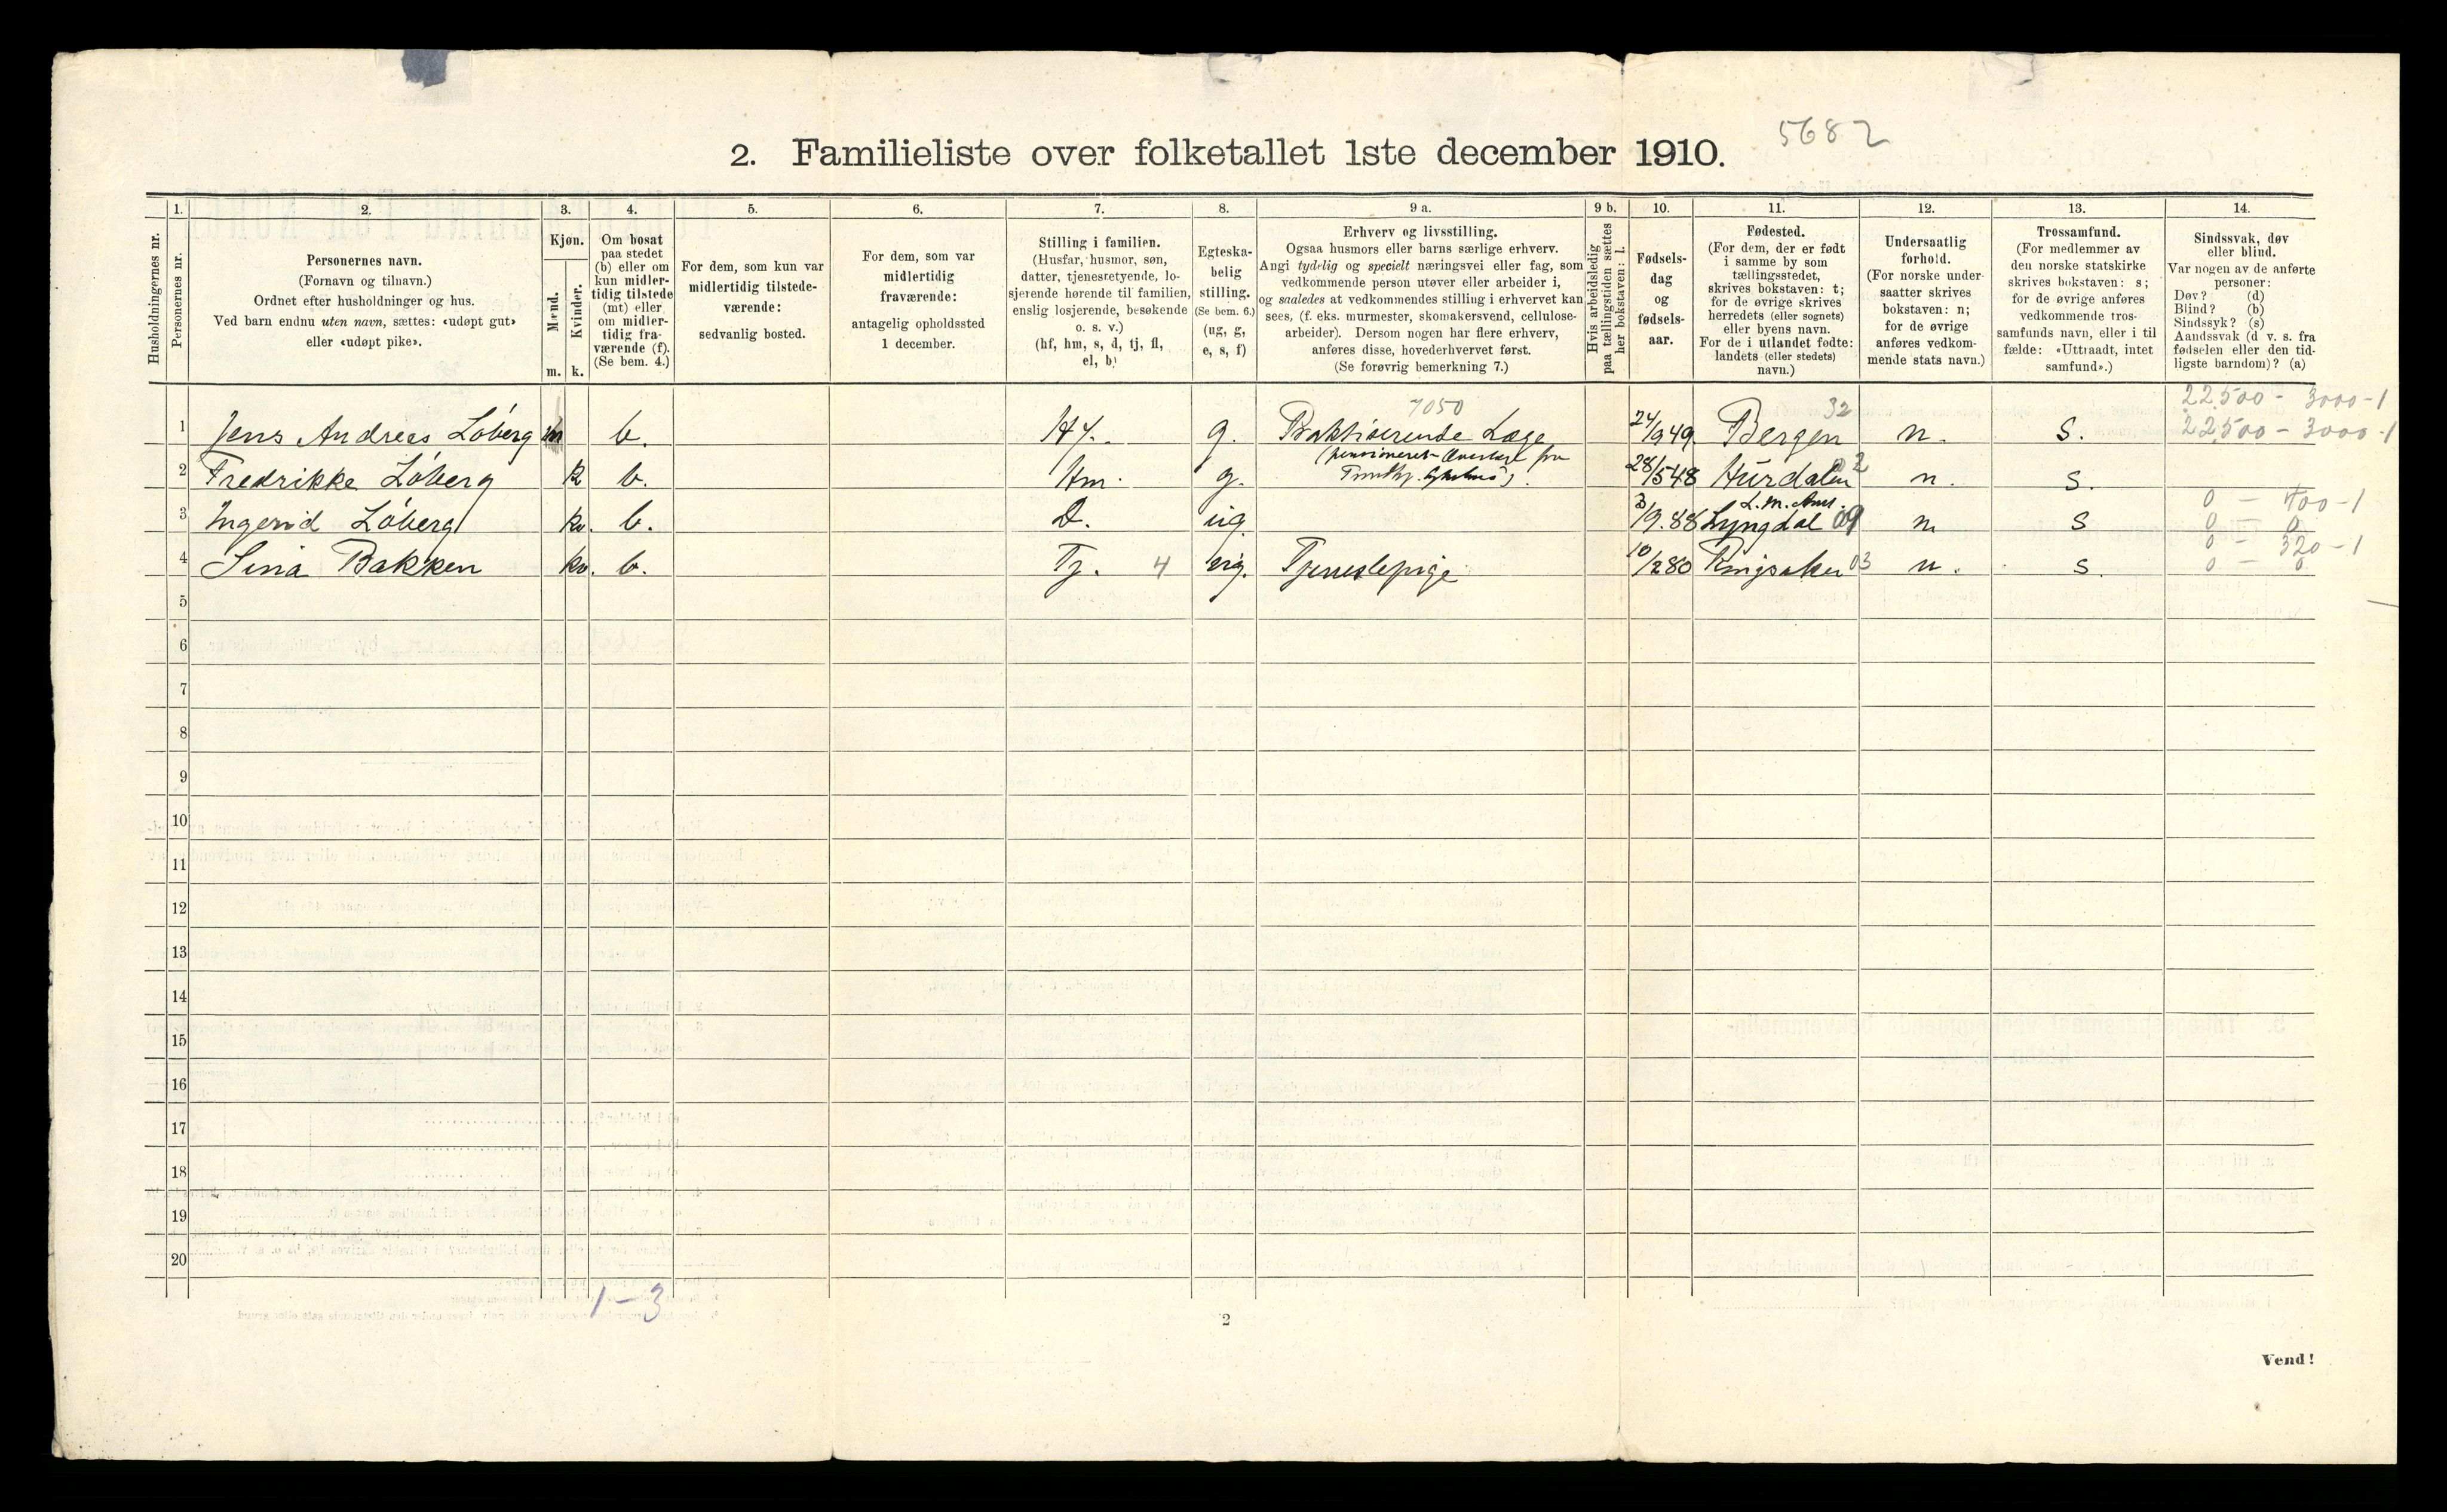 5682
2. Familieliste over folketallet 1ste december 1910.
Husholdningernes nr.
1.
Personernes nr.
2.
Personernes navn.
(Fornavn og tilnavn.)
Ordnet efter husholdninger og hus.
Ved barn endnu uten navn, sættes: «udøpt gut»
eller «udøpt pike».
3.
Kjøn.
Mænd.
Kvinder.
m. k.
4.
Om bosat
paa stedet
(b) eller om
kun midler-
tidig tilstede
(mt) eller
om midler-
tidig fra-
værende (f).
(Se bem. 4.)
5.
For dem, som kun var
midlertidig tilstede-
værende:
sedvanlig bosted.
6.
For dem, som var
midlertidig
fraværende:
antagelig opholdssted
1 december.
7.
Stilling i familien.
(Husfar, husmor, søn,
datter, tjenestetyende, lo-
sjerende hørende til familien,
enslig losjerende, besøkende
o. s. v.)
(hf, hm, s, d, tj, fl,
el, b)
8.
Egteska-
belig
stilling.
(Se bem. 6.)
(ug, g,
e, s, f)
9 a.
Erhverv og livsstilling.
Ogsaa husmors eller barns særlige erhverv.
Angi tydelig og specielt næringsvei eller fag, som
vedkommende person utøver eller arbeider i,
og saaledes at vedkommendes stilling i erhvervet kan
sees, (f. eks. murmester, skomakersvend, cellulose-
arbeider). Dersom nogen har flere erhverv,
anføres disse, hovederhvervet først.
(Se forøvrig bemerkning 7.)
9 b.
Hvis arbeidsledig
paa tællingstiden sættes
her bokstaven: l.
10.
Fødsels-
dag
og
fødsels-
aar.
11.
Fødested.
(For dem, der er født
i samme by som
tællingsstedet,
skrives bokstaven: t;
for de øvrige skrives
herredets (eller sognets)
eller byens navn.
For de i utlandet fødte:
landets (eller stedets)
navn.)
12.
Undersaatlig
forhold.
(For norske under-
saatter skrives
bokstaven: n;
for de øvrige
anføres vedkom-
mende stats navn.)
13.
Trossamfund.
(For medlemmer av
den norske statskirke
skrives bokstaven: s;
for de øvrige anføres
vedkommende tros-
samfunds navn, eller i til
fælde: «Uttraadt, intet
samfund».)
14.
Sindssvak, døv
eller blind.
Var nogen av de anførte
personer:
Døv? (d)
Blind? (b)
Sindssyk? (s)
Aandssvak (d v. s. fra
fødselen eller den tid-
ligste barndom)? (a)
7050 32 22500 - 3000-1
1 Jens Andreas Löberg m b. Hf. g. Praktiserende Læge 24/9 49 Bergen n. s. 22500 - 3000-1
(pensioneret Overlæge fra
2 Fredrikke Löberg k b. Hm. g. 28/5 48 Hurdalen 02 n. s.
L. M. Amt. 0 - 400-1
3 Ingerid Löberg kv. b. D. ug. 3/9.88 Lyngdal 09 n. s 0 - 0
0 - 320-1
4 Sina Bakken kv. b. Tj. 4 ug. Tjenestepige 10/2 80 Ringsaker 03 n. s. 0 - 0
5
6
7
8
9
10
11
12
13
14
15
16
17
18
19
20
1-3
2
Vend!